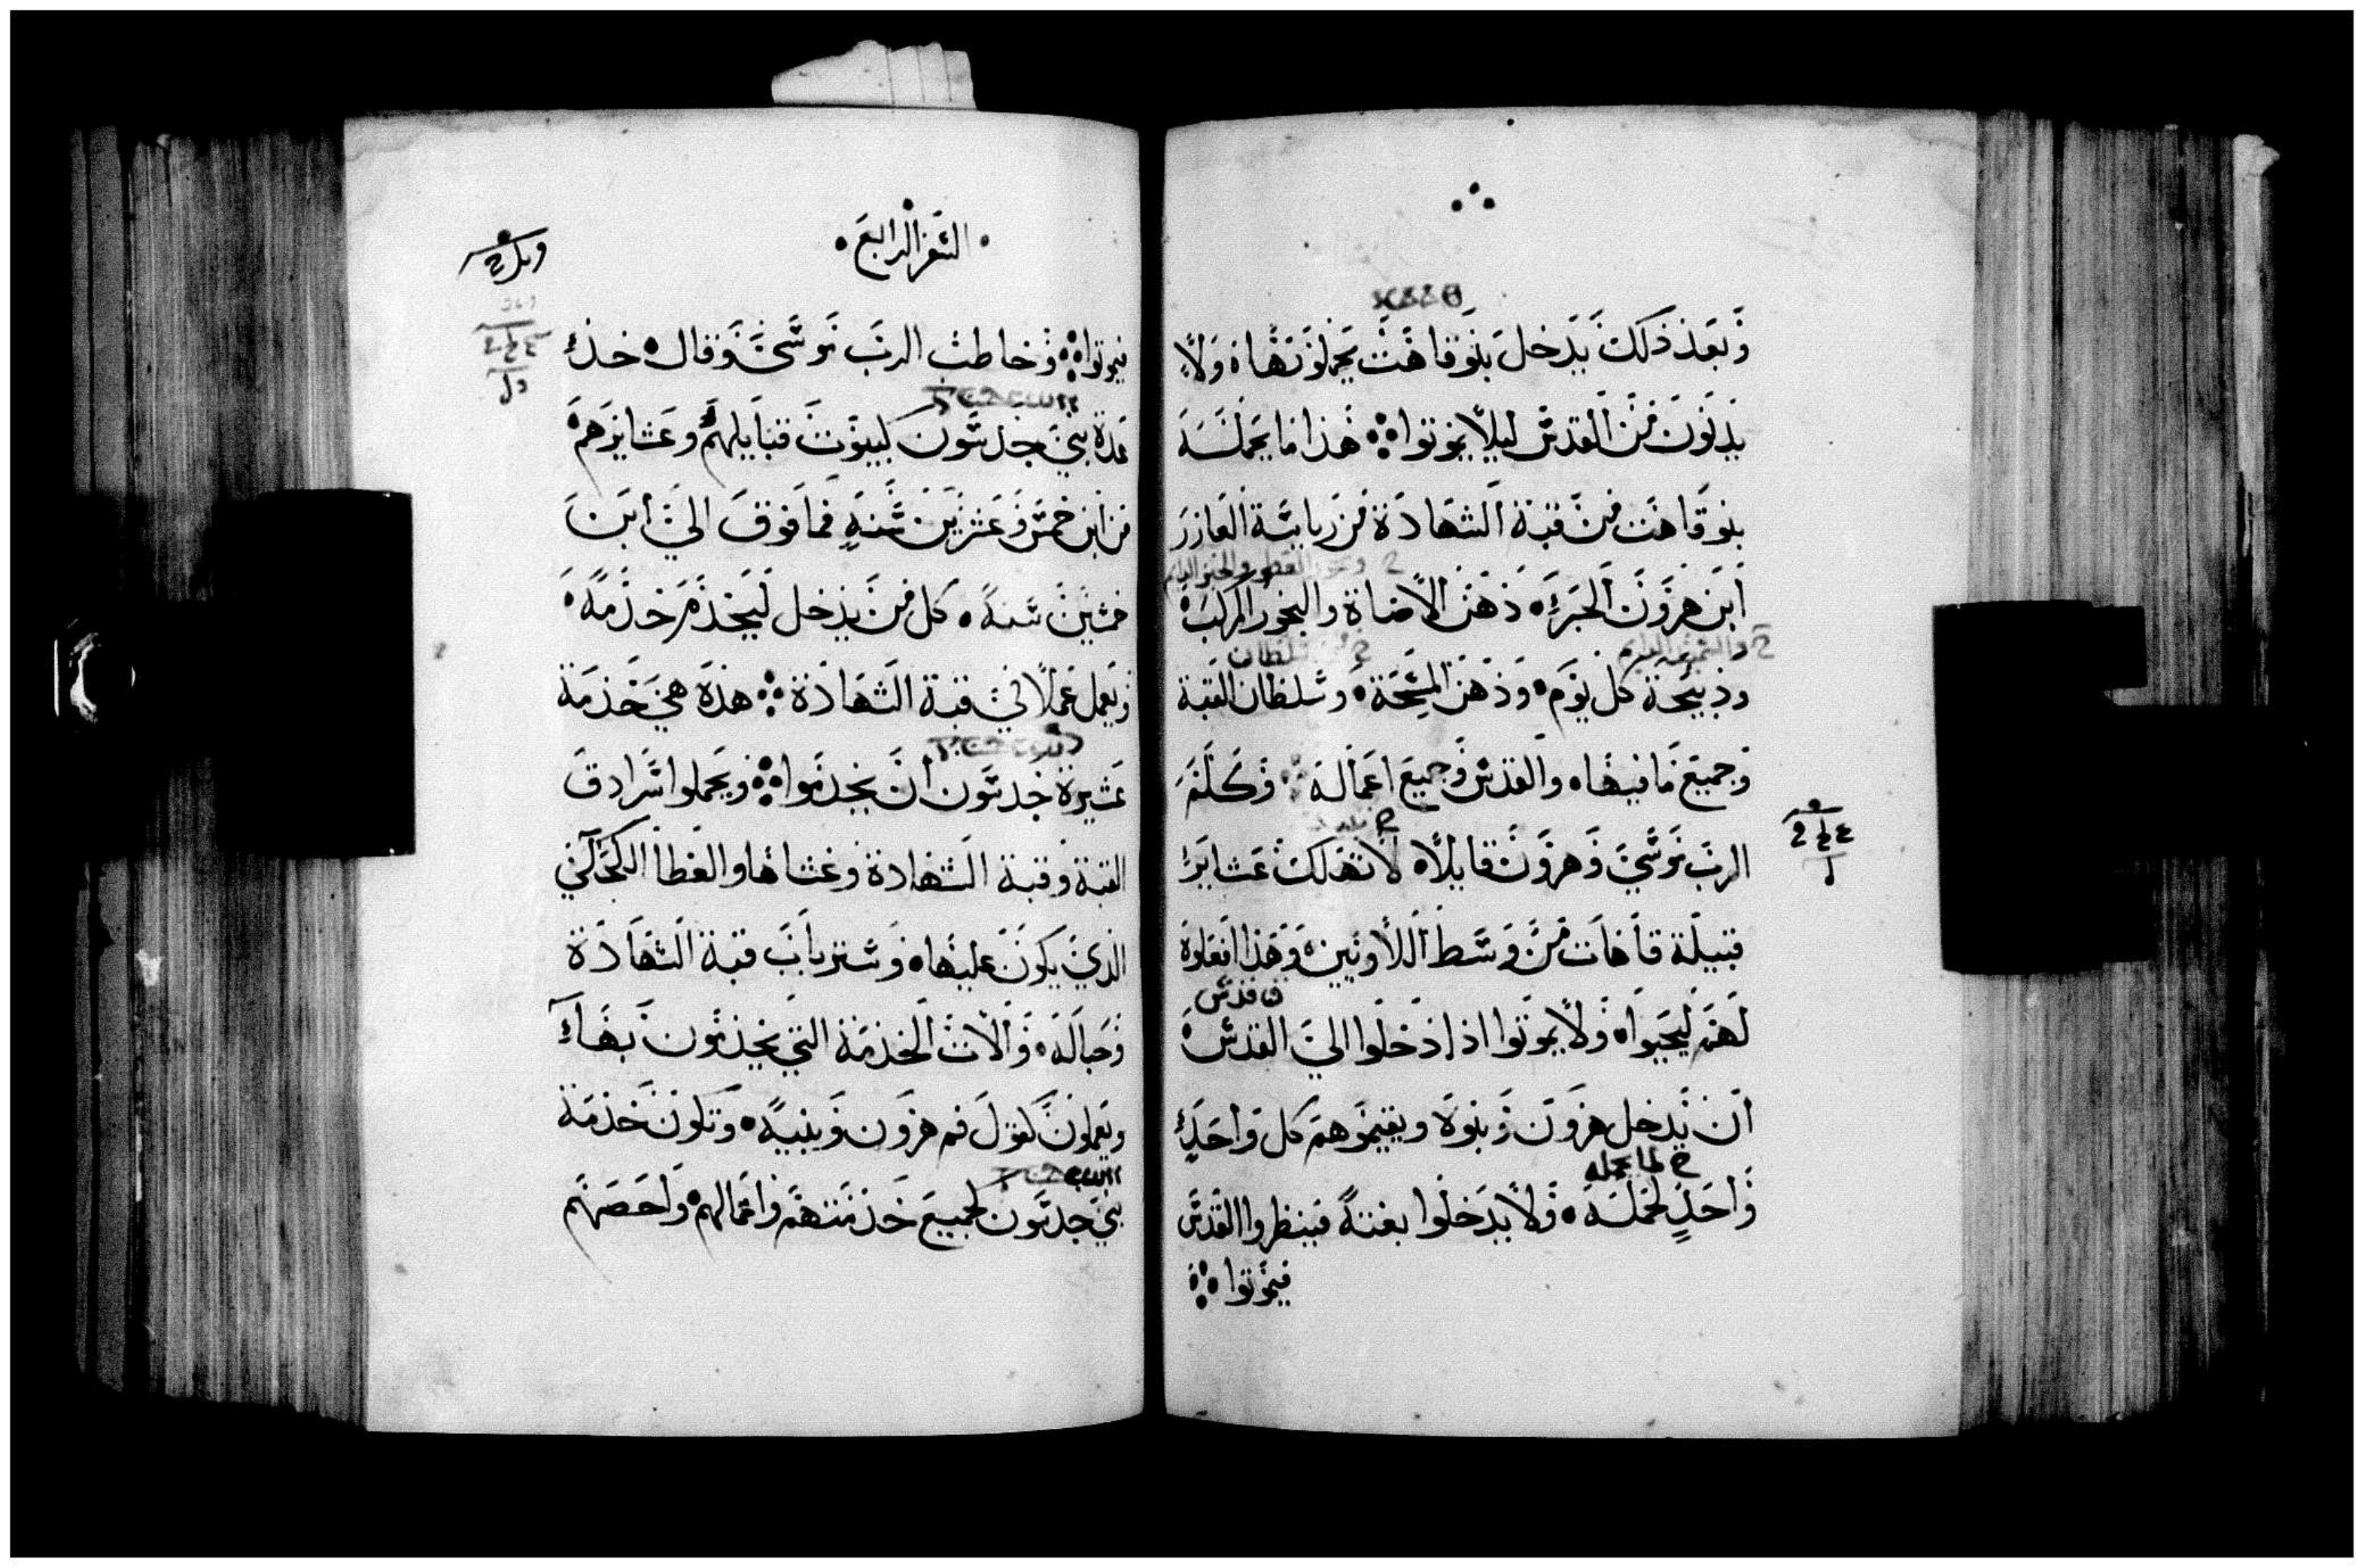 وبعد ذلك يدخل بنو قاهت يحملونها ولا
يدنون من القدس ليلا يموتوا هذا ما يحمله
بنو قاهت من قبة الشهادة من رياسة العازر
ابن هرون الحبر دهن الاضاة والبخور المركب
وذبيحة كل يوم ودهن المسحة وسلطان القبة
وجميع ما فيها والقدس وجميع اعماله وكلم
الرب موسى وهرون قايلا لا تهلك عشاير
قبيلة قاهات من وسط اللاويين وهذا افعلوه
لهم ليحيوا ولا يموتوا اذا دخلوا الي القدس
ان يدخل هرون وبنوه ويقيموهم كل واحد
خ لما يحمله
واحد لحمله ولا يدخلوا بغتة فينظروا القدس
فيموتوا
السفر الرابع
فيموتوا وخاطب الرب موسى وقال خذ
عدة بني جدسون كبيوت قبايلهم وعشايرهم
من ابن خمس وعشرين سنة فما فوق الي ابن
خمسين سنة كل من يدخل ليخدم خدمة
ويعمل عملا في قبة الشهادة هذه هي خدمة
عشيرة جدسون ان يخدموا ويحملوا سرادق
القبة وقبة الشهادة وغشاها والغطا الكحلي
الذي يكون عليها وستر باب قبة الشهادة
وحباله والات الخدمة التي يخدمون بها
ويعملون كقول فم هرون وبنيه وتكون خدمة
بني جدسون لجميع خدمتهم واعمالهم واحصهم